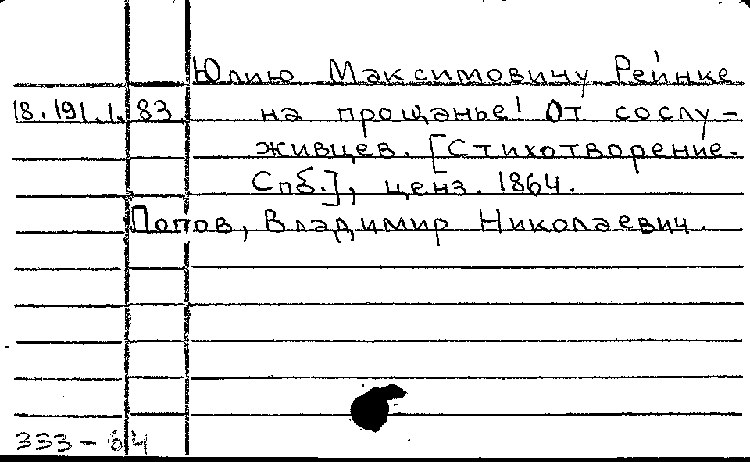 Юлию Максимовину Рейнке
18.191.1.83 на прощанье! От сослу-
живцев. [Стихотворение.
Спб.], ценз. 1864.
Попов, Владимир Николаевич.
333-64